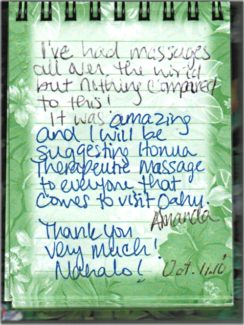 I've had massages
all over the world
but nothing compared
to this!
It was amazing
and I will be
suggesting Honua
Therapeutic Massage
to everyone that
comes to visit Oahu.
Amanda
Thank you
very much!
Mahalo!
Oct. 11,10